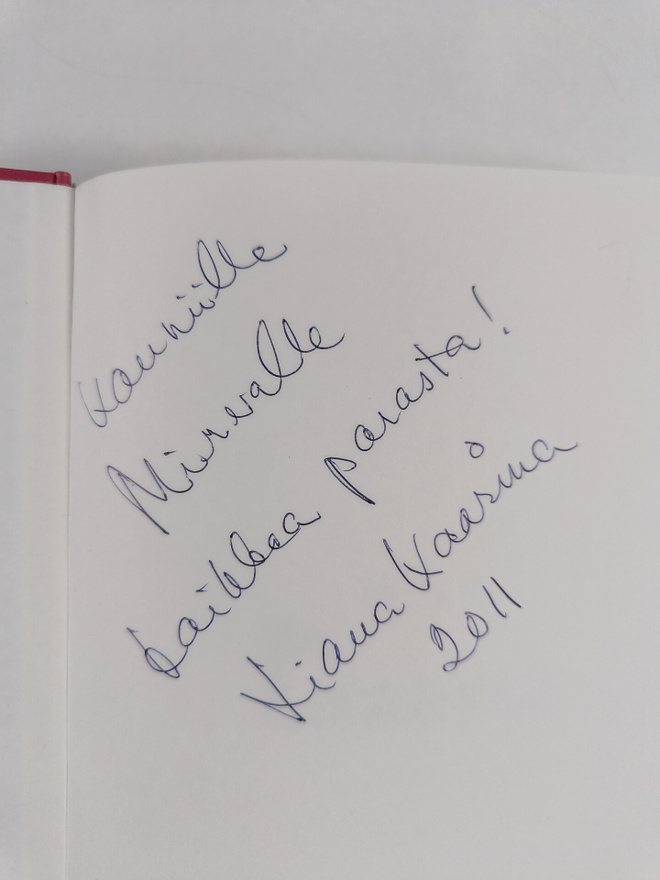 Kauniille
Minealle
kaikkea parasta!
Kiana Kaarina
2011